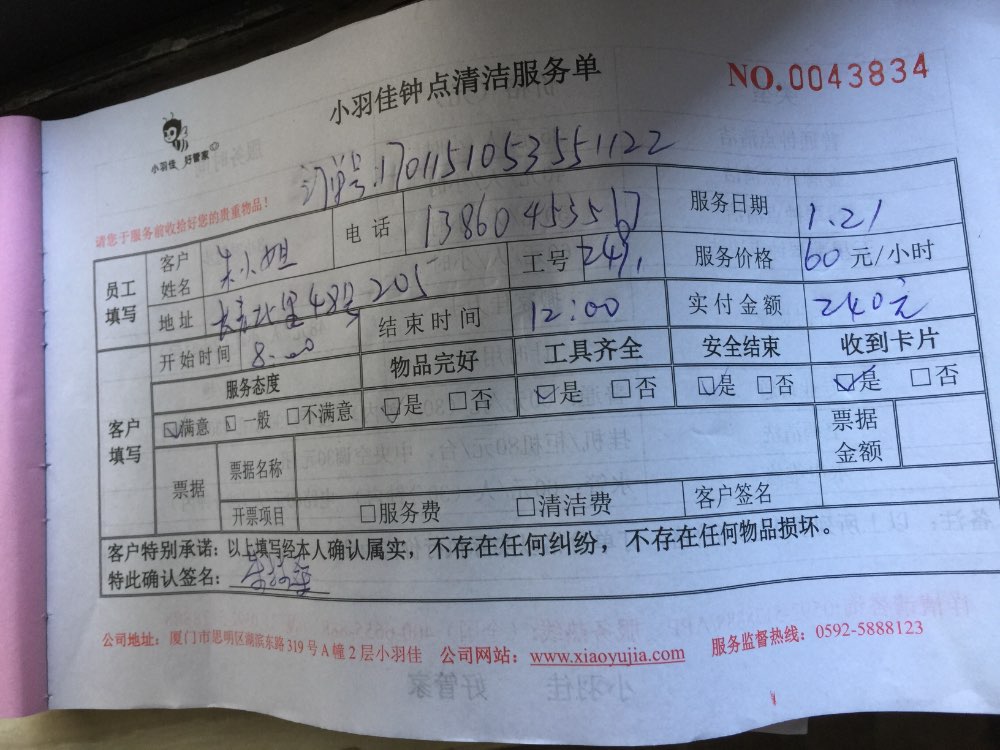 小羽佳钟点清洁服务单
NO.0043834
小羽佳 好管家
订单号:170115105355 1122
请您于服务前收拾好您的贵重物品!
员工填写 客户姓名 朱小姐 电话 13860453567 服务日期 1.21
地址 48号205 工号 2491 服务价格 60元/小时
开始时间 8:00 结束时间 12:00 实付金额 240元
客户填写 服务态度 物品完好 工具齐全 安全结束 收到卡片
☑满意 □一般 □不满意 ☑是 □否 ☑是 □否 ☑是 □否 ☑是 □否
票据 票据名称 票据金额
开票项目 □服务费 □清洁费 客户签名
客户特别承诺:以上填写经本人确认属实,不存在任何纠纷,不存在任何物品损坏。
特此确认签名:
公司地址:厦门市思明区湖滨东路319号A幢2层小羽佳 公司网站:www.xiaoyujia.com 服务监督热线:0592-5888123